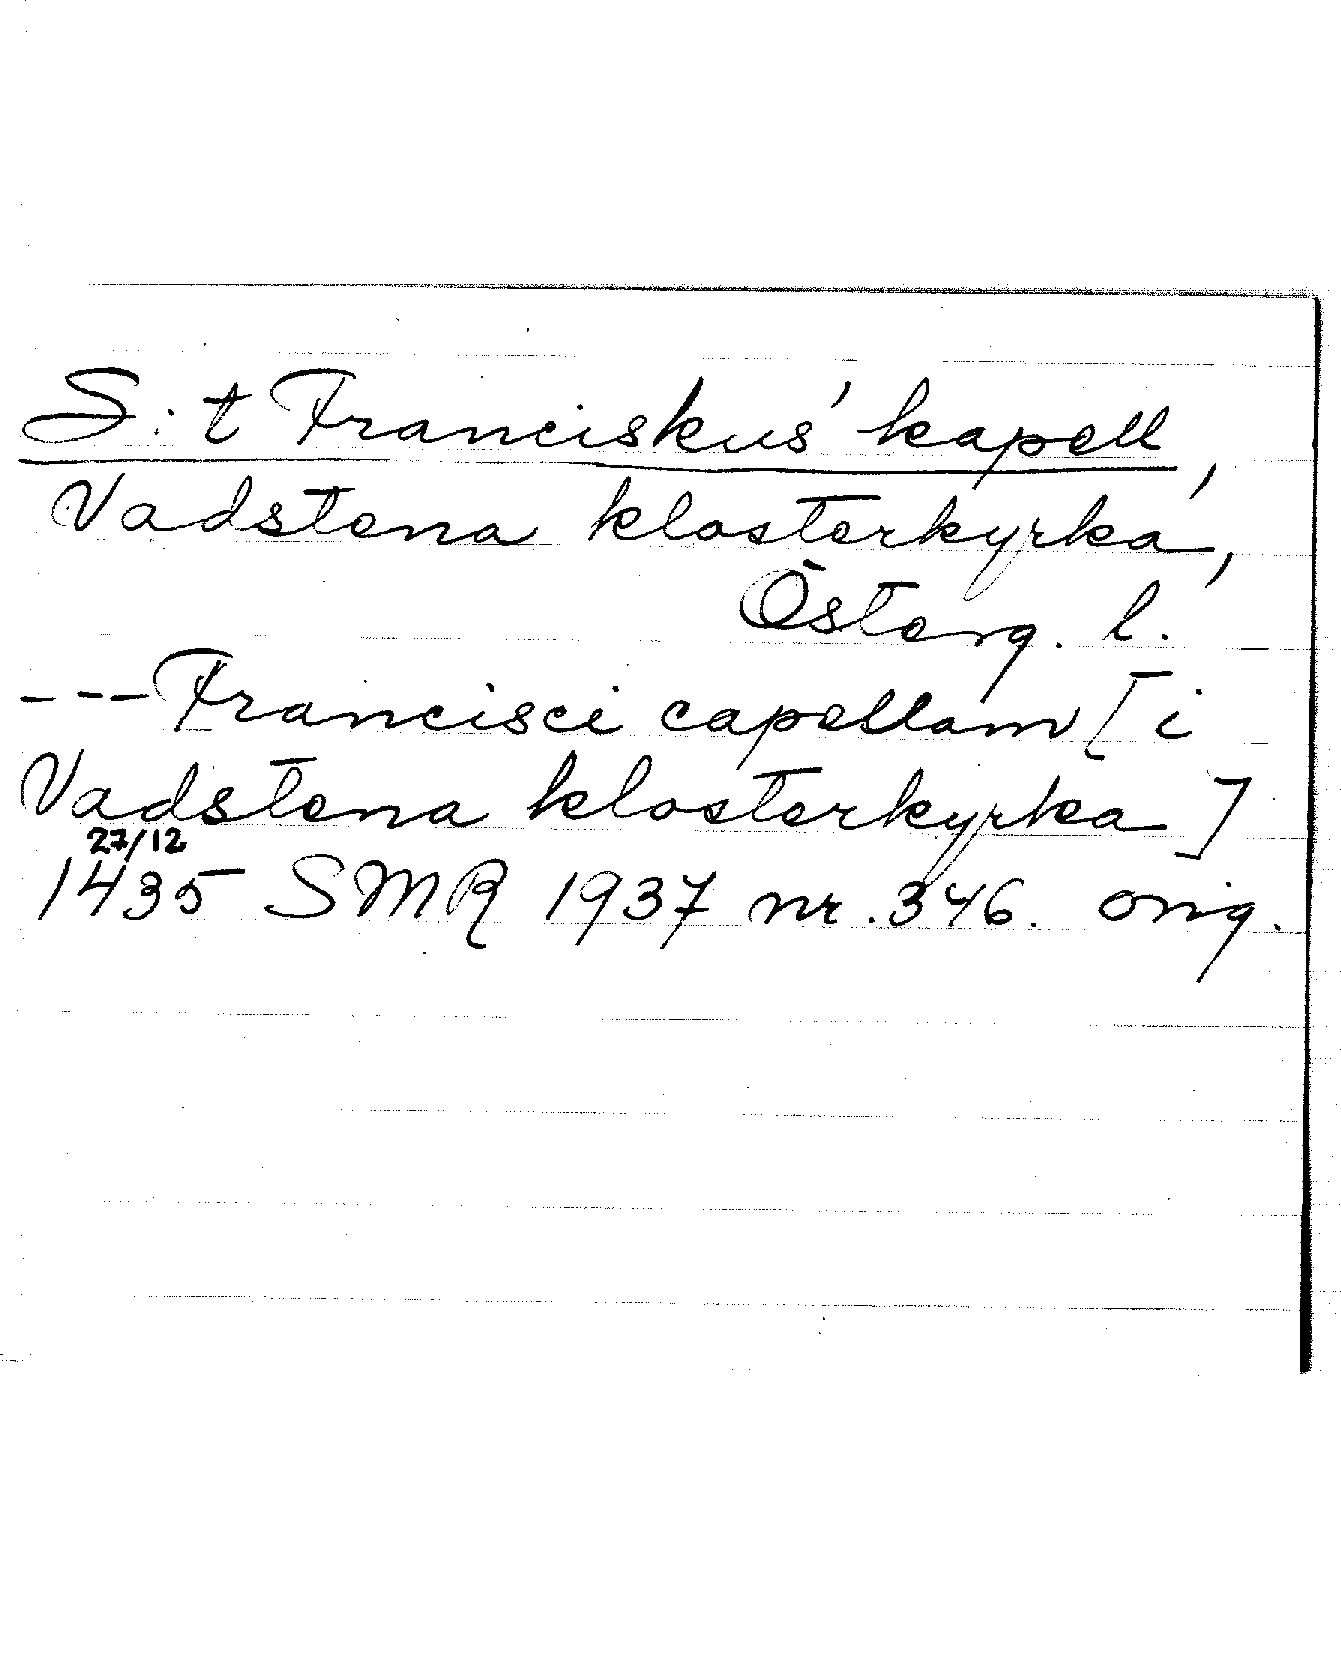 S:t Franciskus' kapell,
Vadstena klosterkyrka,
Österg. l.
--- Francisci capellam [i
Vadstena klosterkyrka]
27/12
1435 SMR 1937 nr. 346. orig.